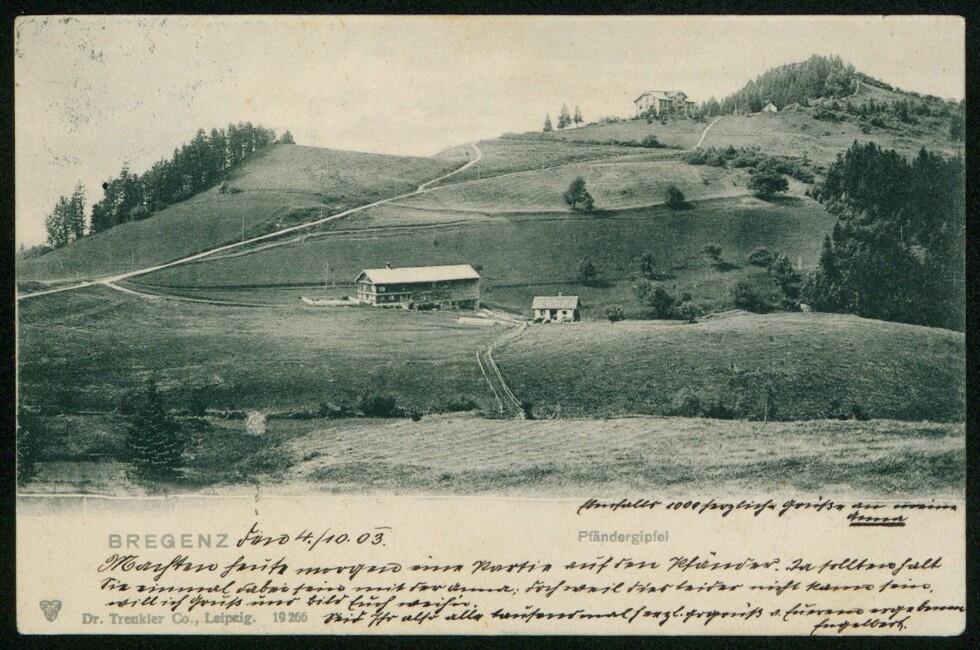 Ebenfalls 1000 herzliche Grüße an meine
Anna
BREGENZ den 4./10.03.
Pfändergipfel
Machten heute morgen eine Partie auf den Pfänder. Da sollten halt
Sie einmal dabei sein mit der Anna; doch weil dies leider nicht kann sein,
will ich Gruß und Bild Euch weihn.
Seid Ihr also alle tausendmal herzl. gegrüßt v. Eurem ergebenen
Engelbert.
Dr. Trenkler Co., Leipzig. 19266